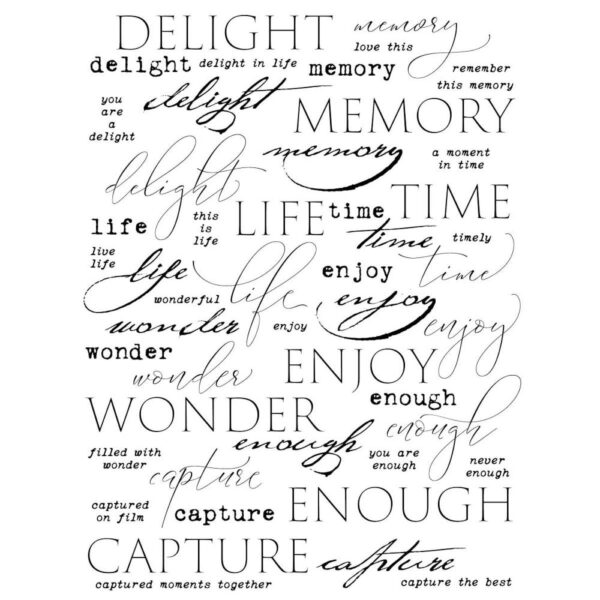 DELIGHT
memory
love this
delight
delight in life
memory
remember
this memory
you
are
a
delight
delight
MEMORY
memory
a moment
in time
delight
life
this
is
life
LIFE
time
TIME
time
timely
live
life
life
life
enjoy
time
wonderful
enjoy
enjoy
wonder
enjoy
wonder
wonder
ENJOY
enough
WONDER
enough
enough
filled with
wonder
you are
enough
never
enough
capture
captured
on film
capture
ENOUGH
CAPTURE
capture
captured moments together
capture the best